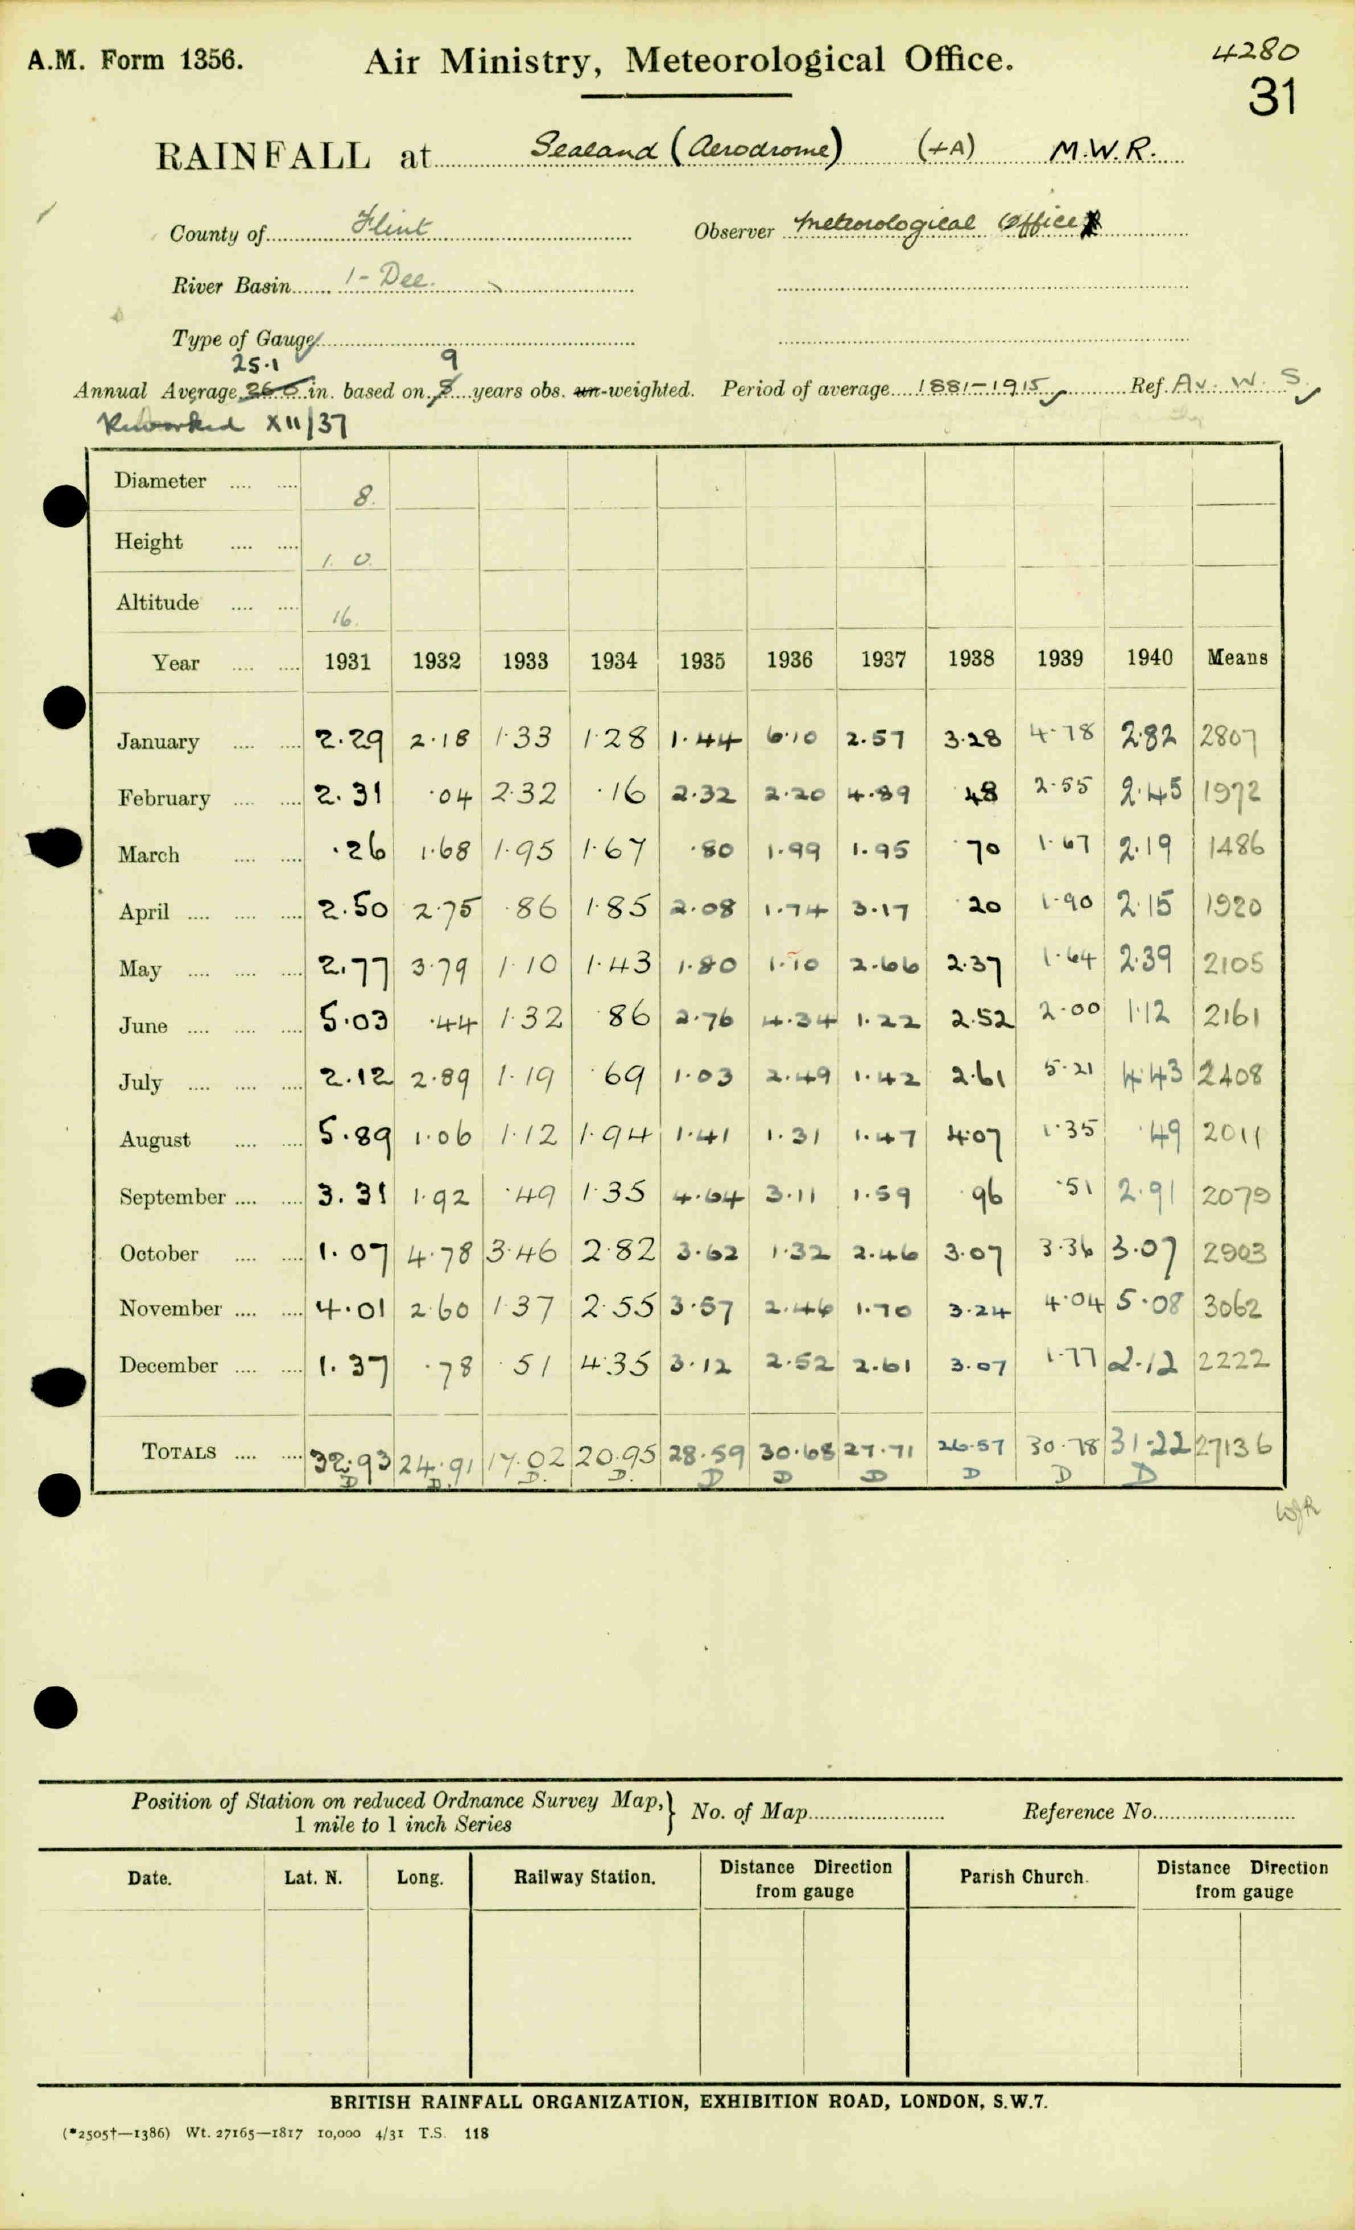 A.M. Form 1356. Air Ministry, Meteorological Office. 4280
31
RAINFALL at Sealand (Aerodrome) (+A) M.W.R.
County of Flint Observer Meteorological Office
River Basin 1- Dee.
Type of Gauge
25.1 9
Annual Average 26.0 in. based on 8 years obs. un-weighted. Period of average 1881-1915 Ref. Av. W. S
Reworked XII/37
Diameter .... .... 8.
Height .... .... 1. 0.
Altitude .... .... 16.
Year .... .... 1931 1932 1933 1934 1935 1936 1937 1938 1939 1940 Means
January .... .... 2.29 2.18 1.33 1.28 1.44 6.10 2.57 3.28 4.78 2.82 2807
February .... .... 2.31 .04 2.32 .16 2.32 2.20 4.89 .48 2.55 2.45 1972
March .... .... .26 1.68 1.95 1.67 .80 1.99 1.95 .70 1.67 2.19 1486
April .... .... .... 2.50 2.75 .86 1.85 2.08 1.74 3.17 .20 1.90 2.15 1920
May .... .... .... 2.77 3.79 1.10 1.43 1.80 1.10 2.66 2.37 1.64 2.39 2105
June .... .... .... 5.03 .44 1.32 .86 2.76 4.34 1.22 2.52 2.00 1.12 2161
July .... .... .... 2.12 2.89 1.19 .69 1.03 2.49 1.42 2.61 5.21 4.43 2408
August .... .... 5.89 1.06 1.12 1.94 1.41 1.31 1.47 4.07 1.35 .49 2011
September .... .... 3.31 1.92 .49 1.35 4.64 3.11 1.59 .96 .51 2.91 2079
October .... .... 1.07 4.78 3.46 2.82 3.62 1.32 2.46 3.07 3.36 3.07 2903
November .... .... 4.01 2.60 1.37 2.55 3.57 2.46 1.70 3.24 4.04 5.08 3062
December .... .... 1.37 .78 .51 4.35 3.12 2.52 2.61 3.07 1.77 2.12 2222
TOTALS .... .... 32.93 24.91 17.02 20.95 28.59 30.68 27.71 26.57 30.78 31.22 27136
D D. D. D. D D D D D D
Position of Station on reduced Ordnance Survey Map, } No. of Map Reference No.
1 mile to 1 inch Series
Date. Lat. N. Long. Railway Station. Distance Direction Parish Church. Distance Direction
from gauge from gauge
BRITISH RAINFALL ORGANIZATION, EXHIBITION ROAD, LONDON, S.W.7.
(*2505†—1386) Wt. 27165—1817 10,000 4/31 T.S. 118